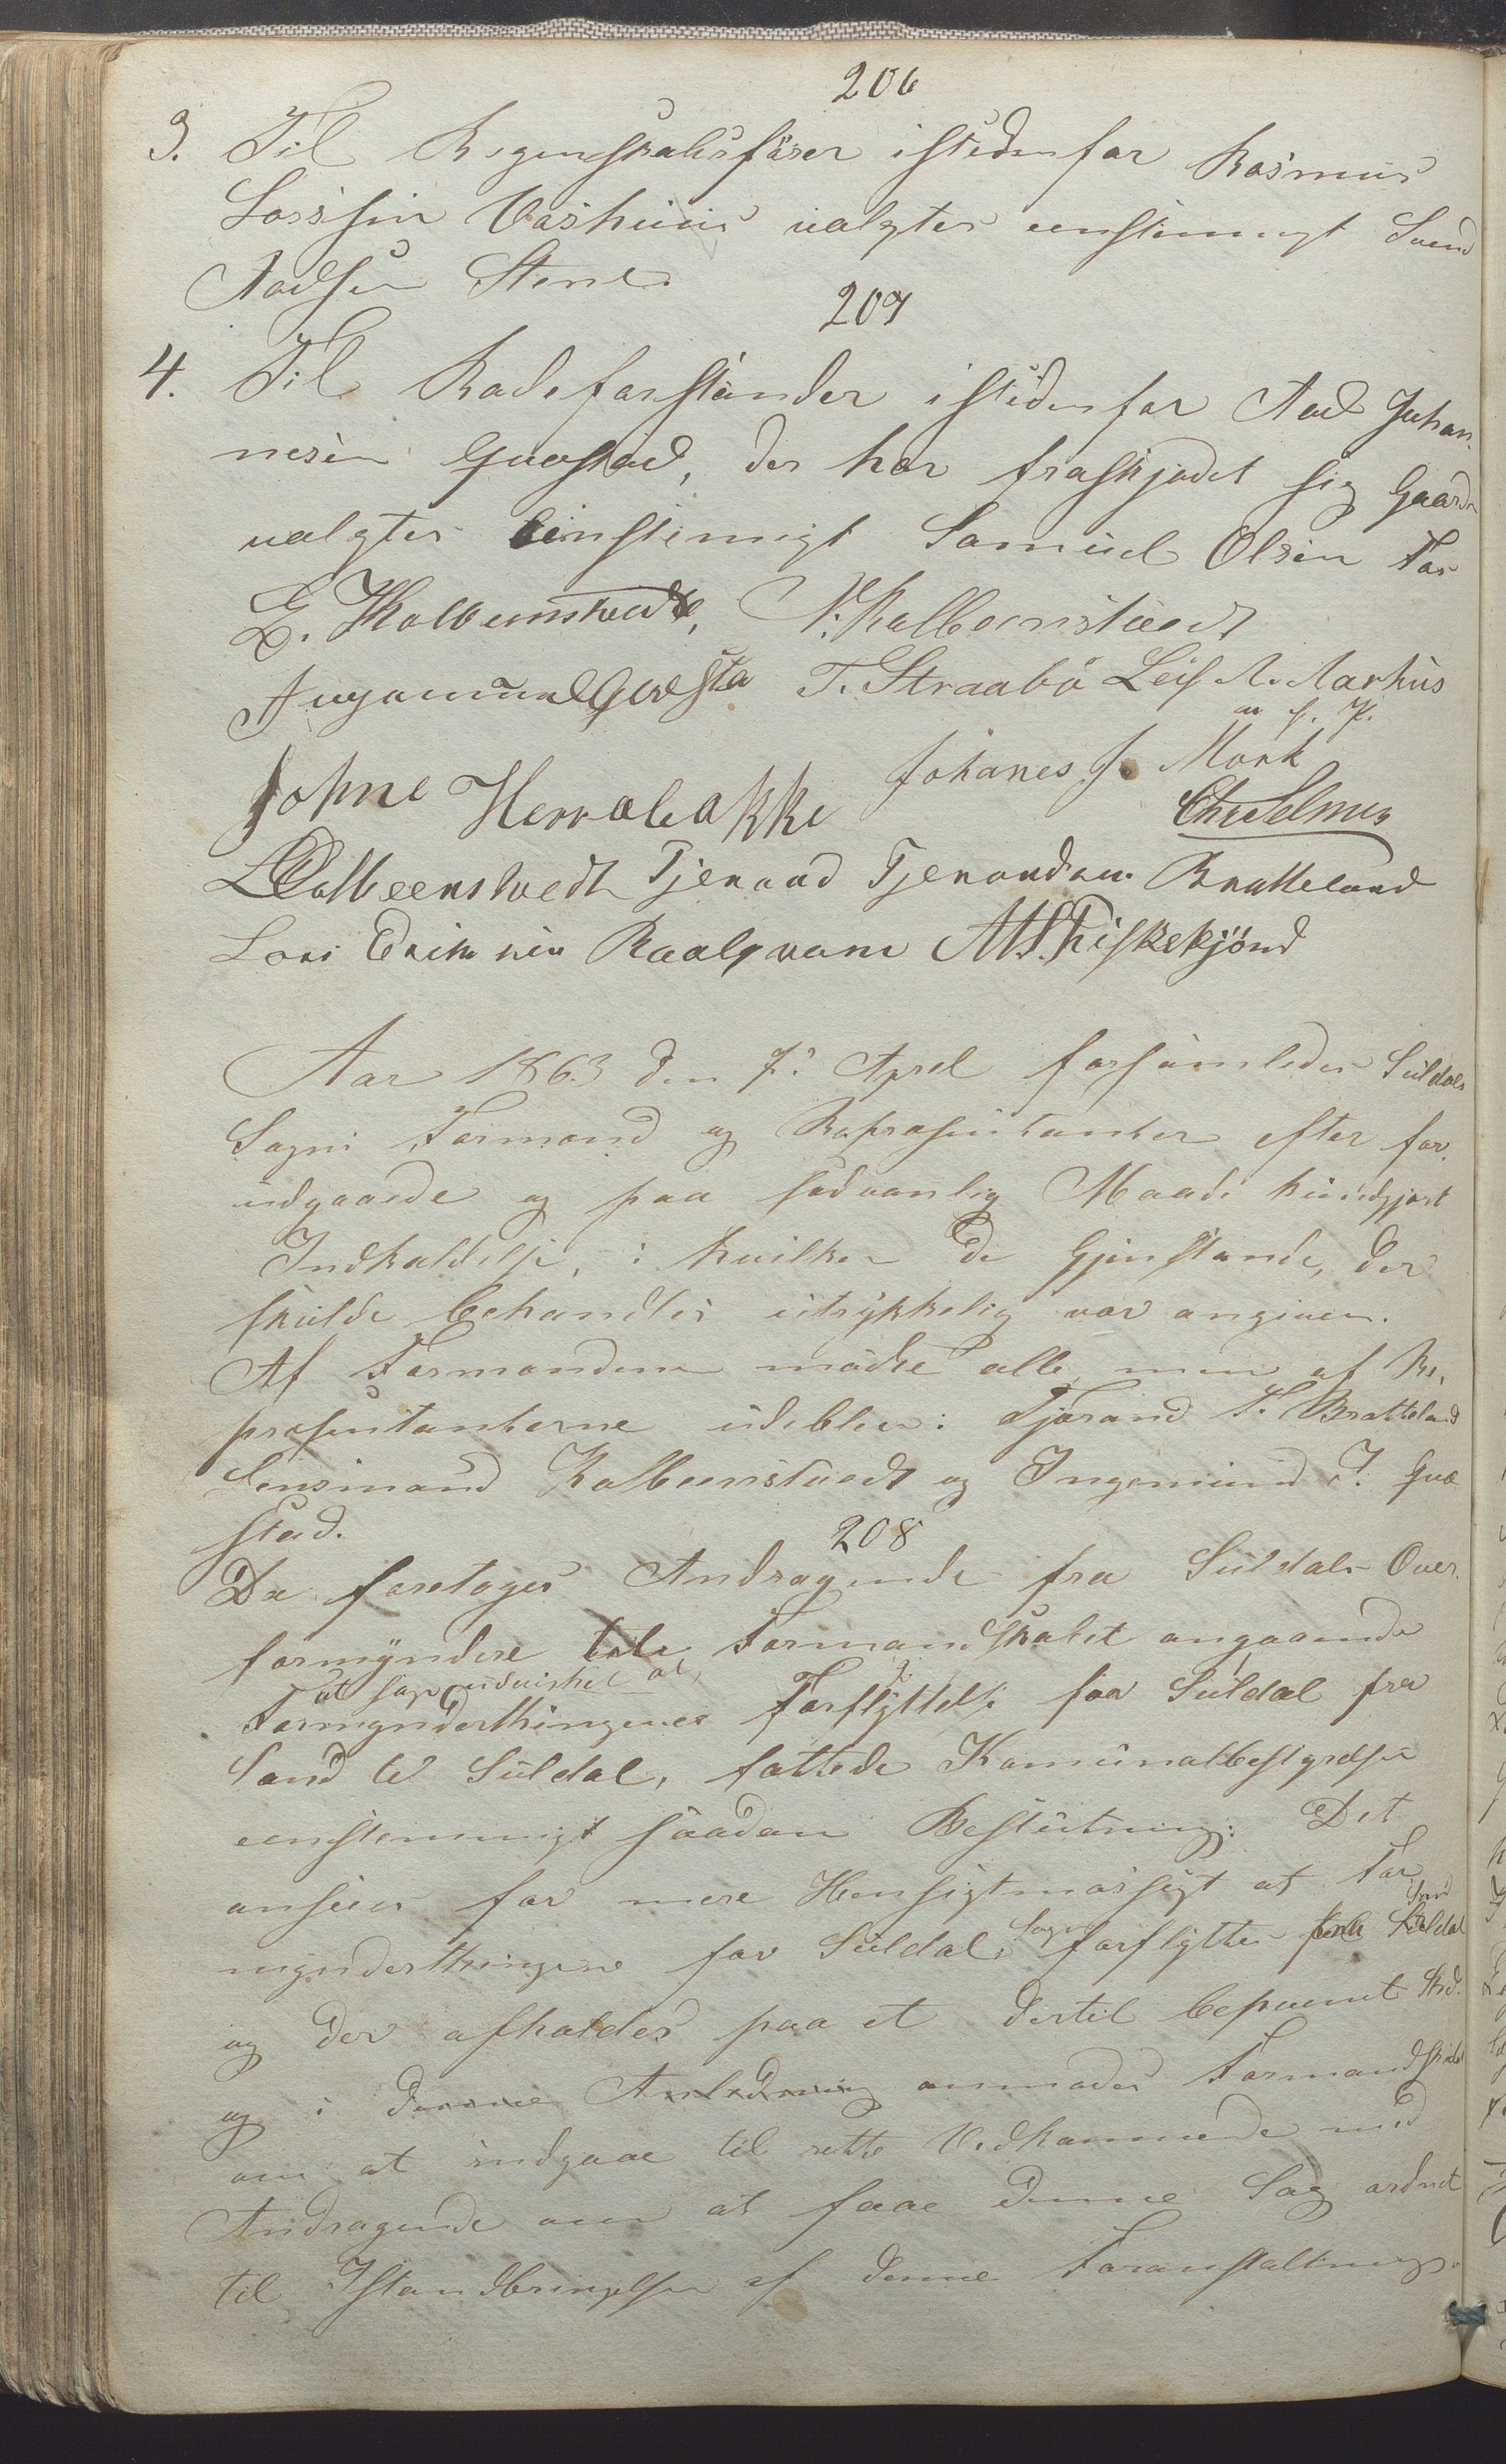 206
3. Til Regenskabsfører istedenfor Rasmus
Larssen Vashuus valgtes eenstemmigt Svend
Aadsen Stene.
207
4. Til Rodeforstander istedenfor Aad Johan-
nesen Gvastad, der har fraskjødet sig Gaarden
valgtes Eenstemmigt Samuel Olsen
E. Kolbeenstvedt, N: Kolbeenstvedt
Ingamund Gvasta T. Straabø Leif A. Aarhus
m f. P.
Johanes J. Mork
Johne Herrabakke Chr Selmer
L Colbeenstvedt Tjeraand Tjerandsen Bratteland
Lars Eriksen Raalqvam M S. Fiskekjönd
Aar 1863 den 7de April forsamledes Suldals
Sogns Formænd og Repræsentanter efter for-
udgaaede og paa sædvanlig Maade kundgjort
Indkaldelse, i hvilken de Gjenstande, der
skulde behandles utrykkelig var angiven.
Af Formændene mødte alle, men af Re-
præsentanterne udeblev: Tjerand T. Bratteland
Gunsmand Kolbeenstvedt og Ingemund J. Gva-
stad.
208
Da foretoges Andragende fra Suldals Over-
formyndere til Formandskabet angaaende
at søge udvirket at
Formynderthingenes Forflyttelse for Suldal fra
Sand til Suldal, fattede Kommunalbestyrelsen
eenstemmigt saadan Beslutning: Det
ansees for mere Hensigtmæssigt at For-
mynderthingene for Suldals Sogn forflyttes fra Sand til Suldal
og der afholdes paa et dertil bepvemt Sted.
og i denne Anledning anmodes Formandskabet
om at indgaae til rette Vedkommende med
Andragende om at faae denne Sag ordnet
til Istandbringelsen af denne Foranstaltning.